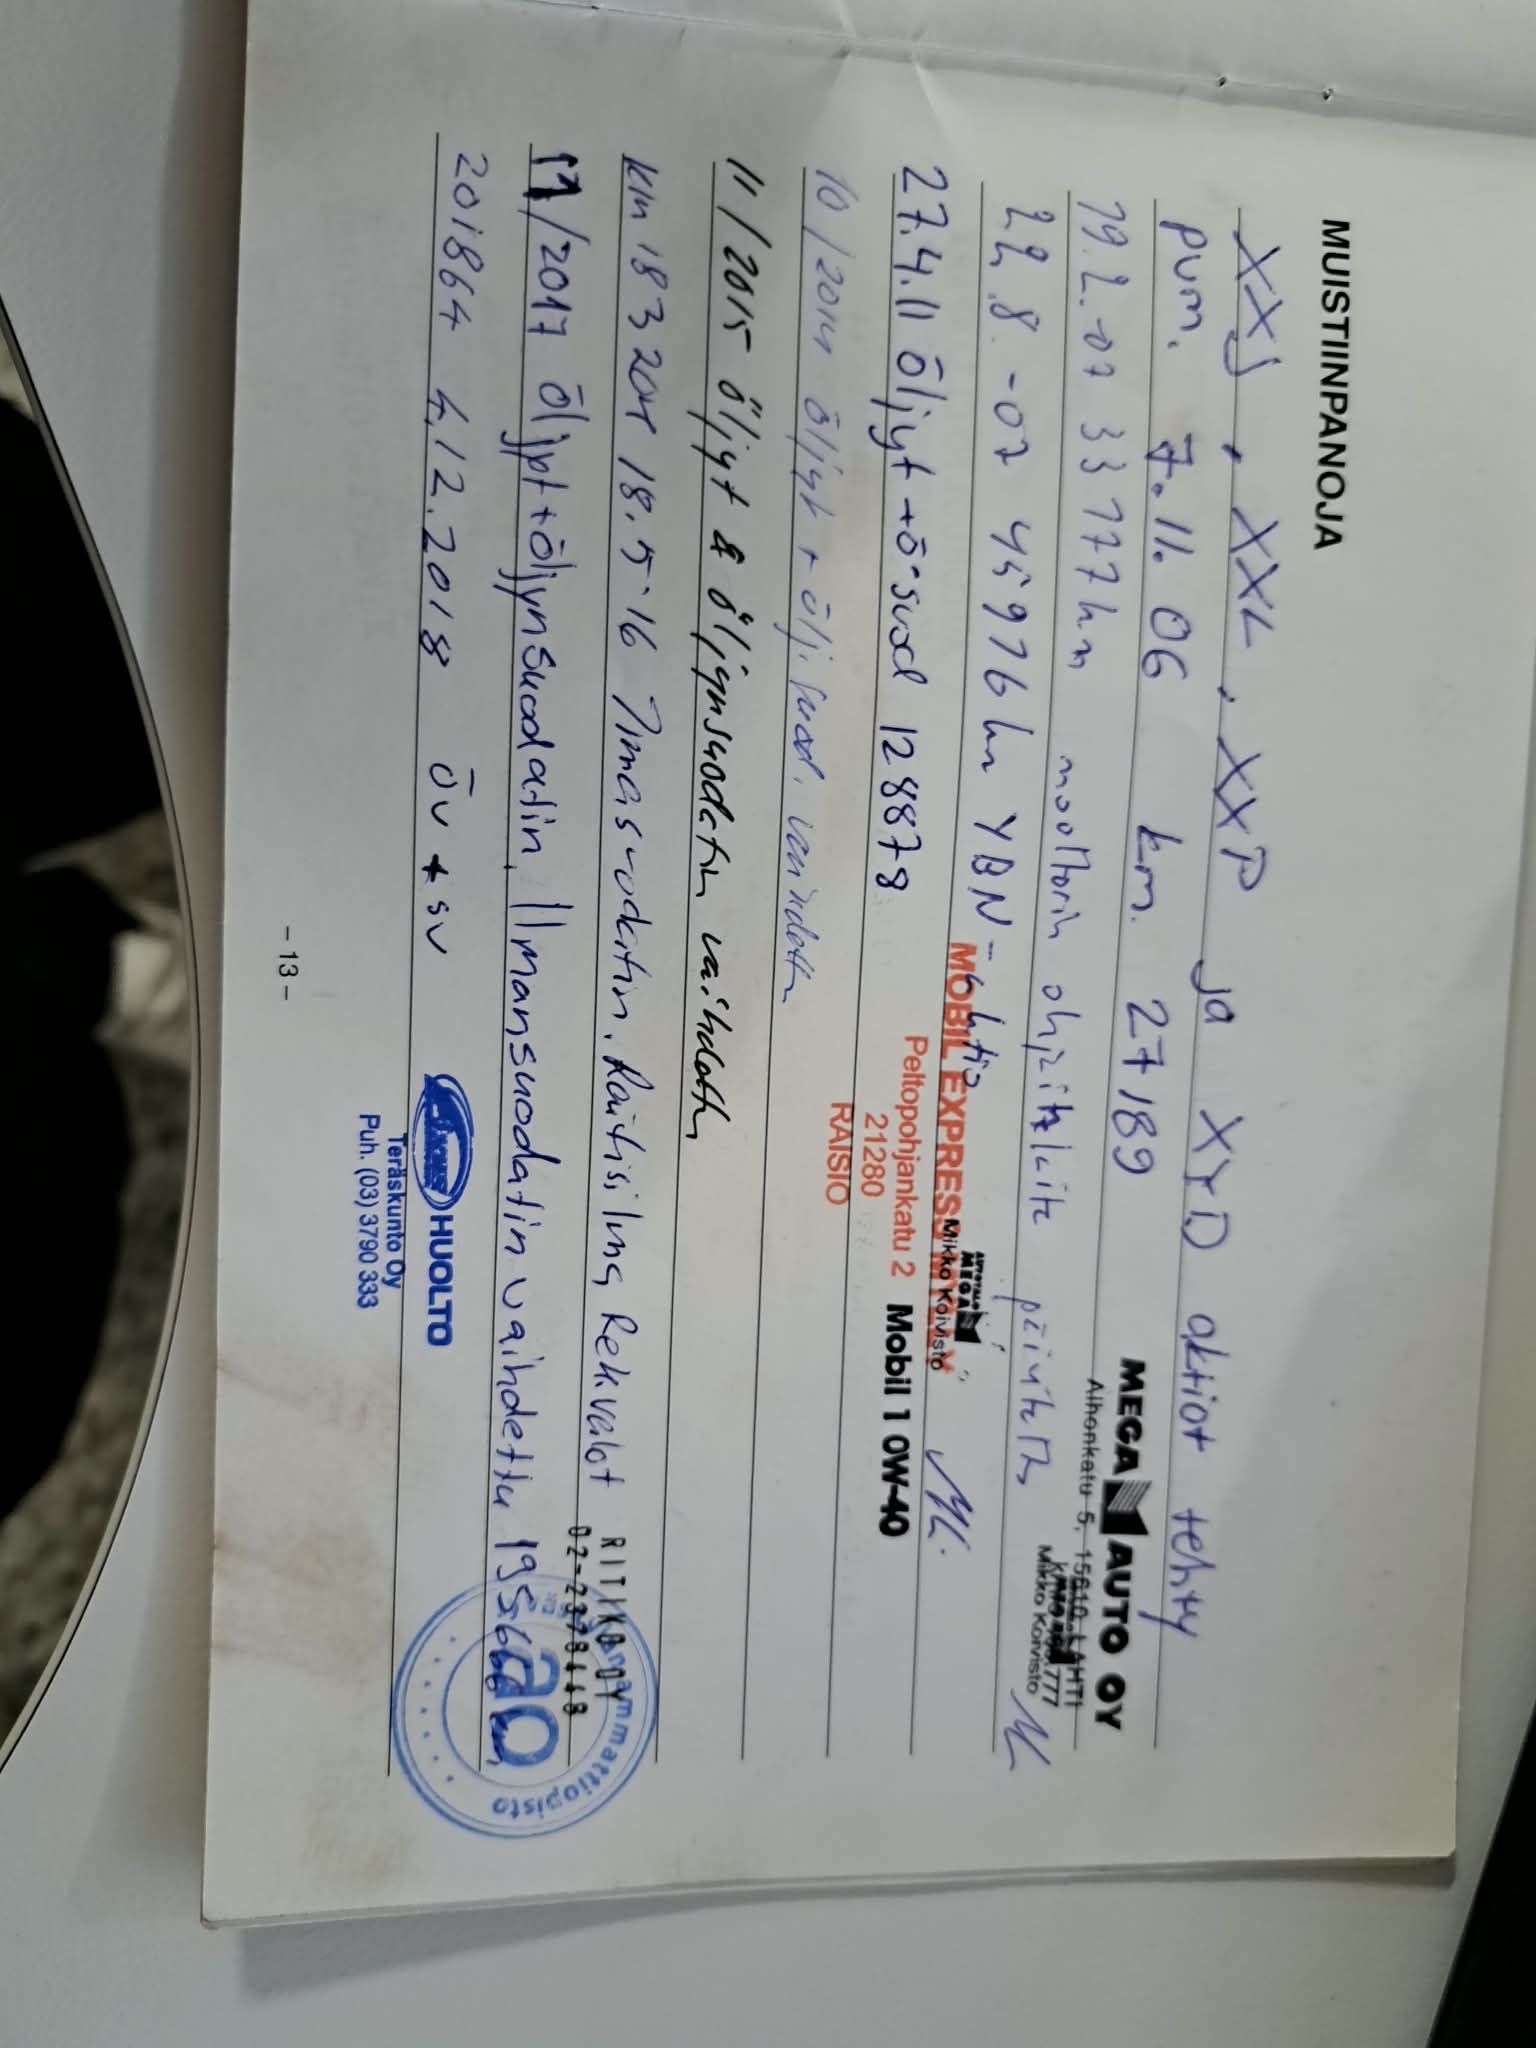 MUISTIINPANOJA
XXJ, XXL, XXP ja XYD aktiot tehty
pvm. 7.11.06 km. 27189
MEGA AUTO OY
Alhonkatu 5, 15610 LAHTI
19.2.-07 33177km moottorin ohjainlaite päivitetty
Mikko Koivisto
22.8.-07 45976km YBN-ahtio
MEGA
Mikko Koivisto
MOBIL EXPRESS
Peltopohjankatu 2
21280
RAISIO
27.4.11 öljyt + ö-suod 128878 Mobil 1 0W-40
10/2014 öljyt + öljysuod. vaihdettu
11/2015 öljyt & öljynsuodatin vaihdettu
km 183204 18.5.16 Ilmasuodatin, Raitisilma, Rek.valot
RITIKO OY
02-2378448
11/2017 öljyt+öljynsuodatin, Ilmansuodatin vaihdettu 195666 km
ammattiopisto
ao
201864 4.12.2018 öv + sv
HUOLTO
Teräskunto Oy
Puh. (03) 3790 333
-13-